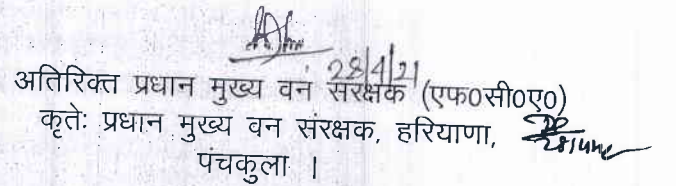 28/4/21
अतिरिक्त प्रधान मुख्य वन संरक्षक (एफ0सी0ए0)
कृतेः प्रधान मुख्य वन संरक्षक, हरियाणा,
पंचकुला ।